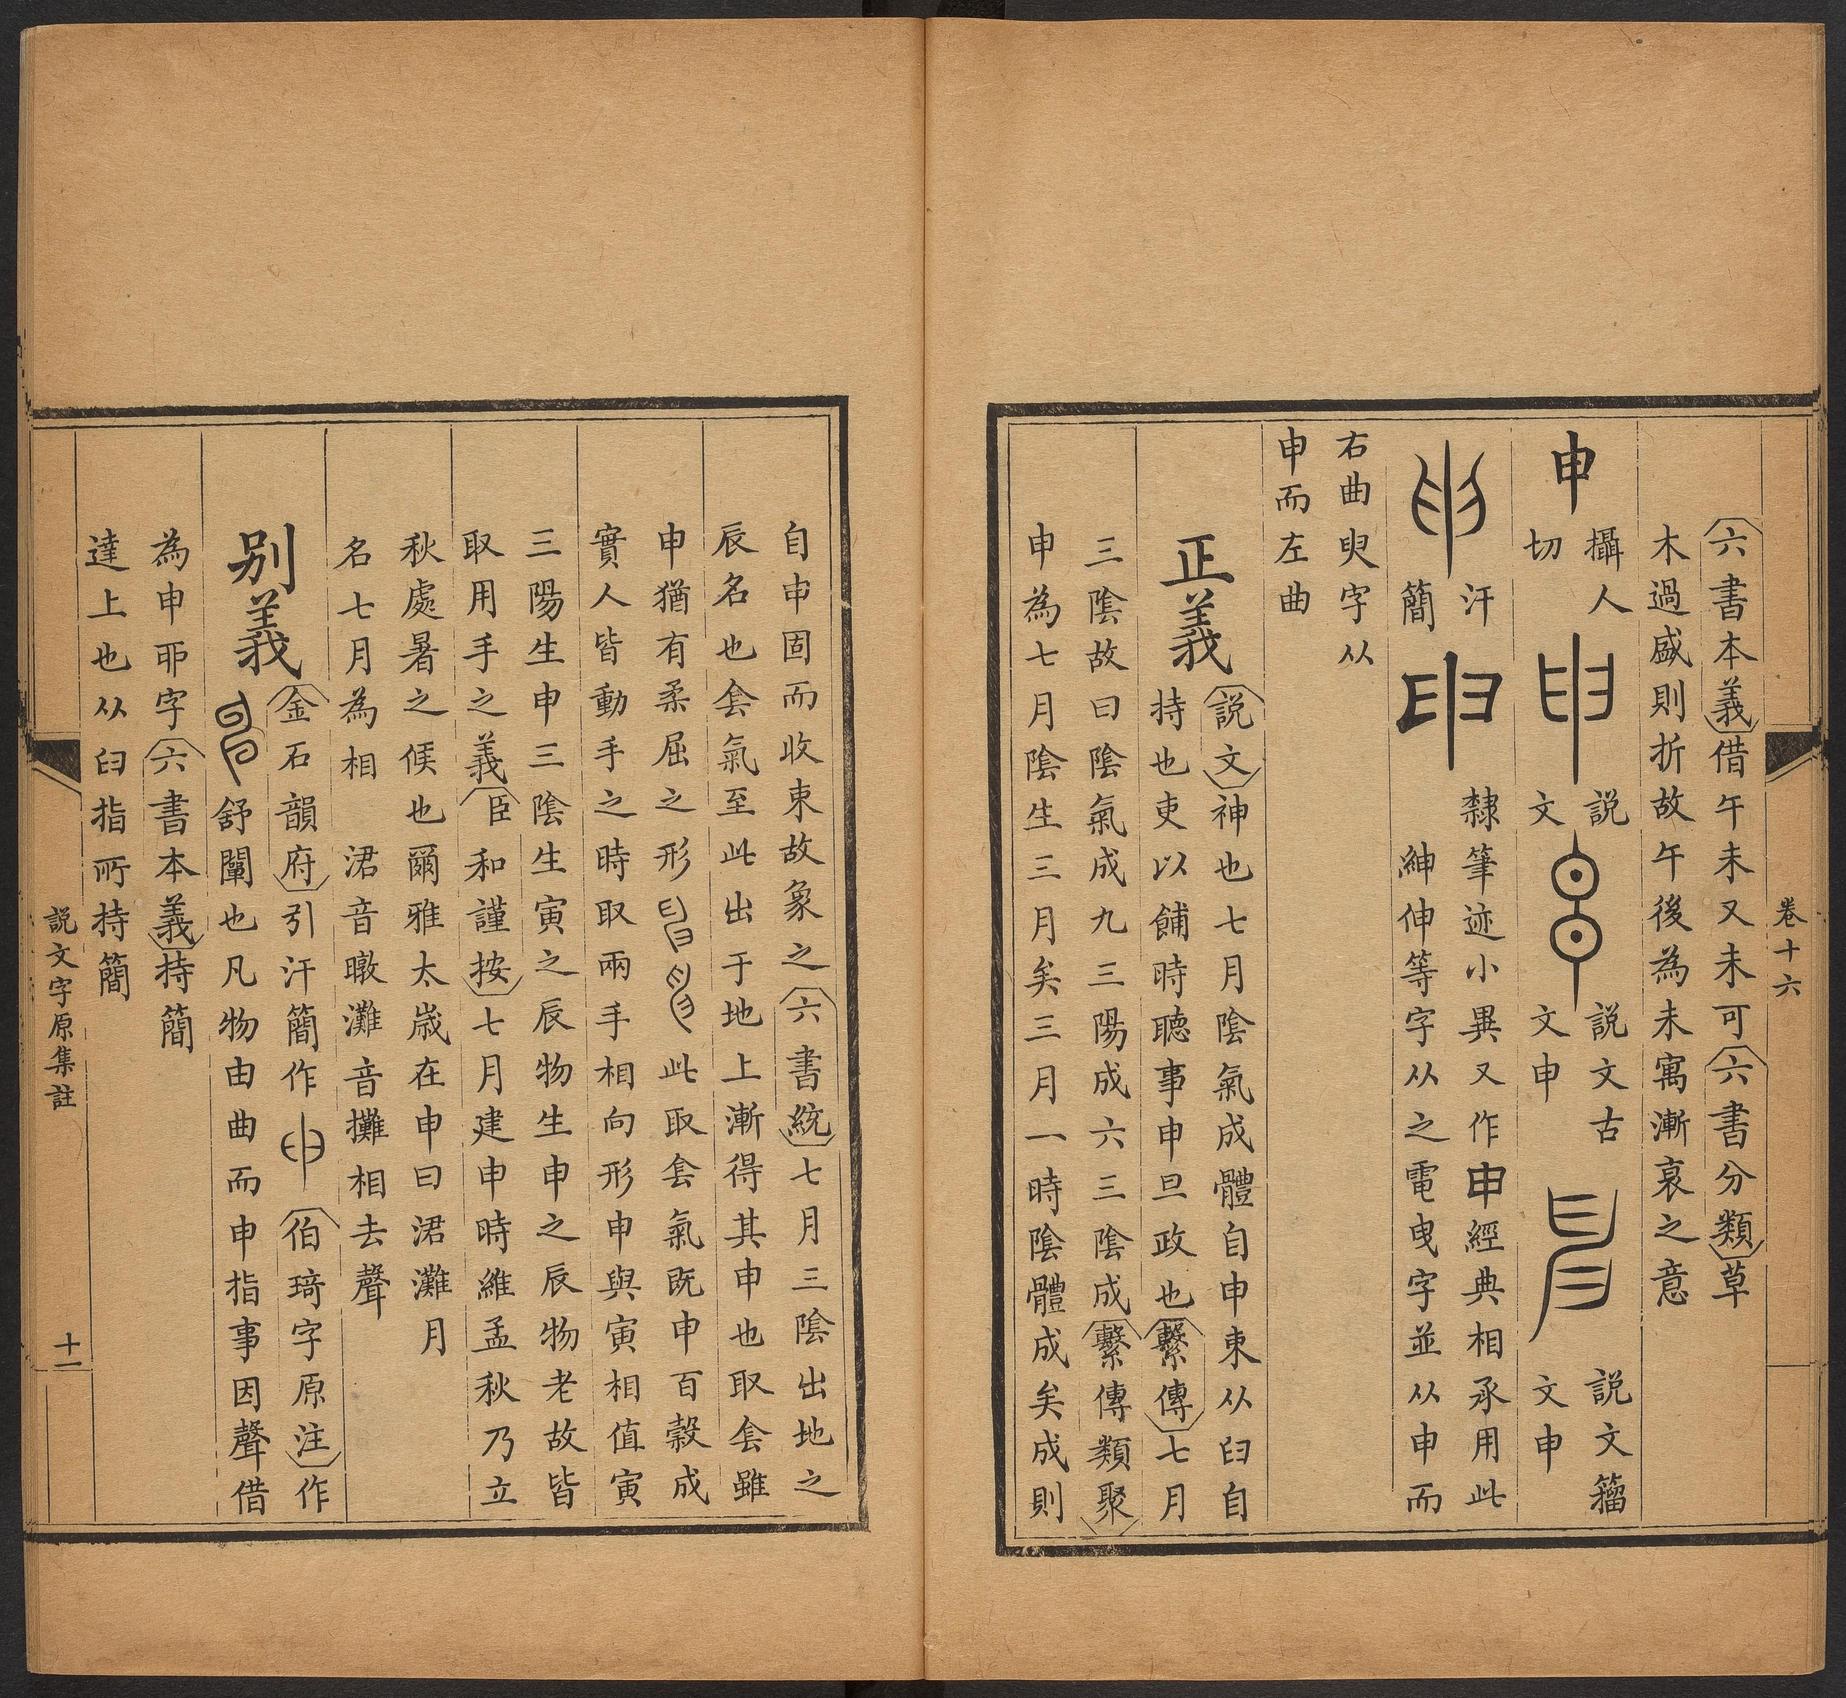 卷十六
六書本義借午未又未可六書分類草
木過盛則折故午後為未寓漸衰之意
申
攝人
切
説
文
説文古
文申
説文籀
文申
汗
簡
隸筆迹小異又作申經典相承用此
紳伸等字从之電曳字並从申而
右曲臾字从
申而左曲
正義
説文神也七月陰氣成體自申束从𦥑自
持也吏以餔時聽事申旦政也繫傳七月
三陰故曰陰氣成九三陽成六三陰成繫傳類聚
申為七月陰生三月矣三月一時陰體成矣成則
自申固而收束故象之六書統七月三陰出地之
辰名也侌氣至此出于地上漸得其申也取侌雖
申猶有柔屈之形此取侌氣既申百穀成
實人皆動手之時取兩手相向形申與寅相值寅
三陽生申三陰生寅之辰物生申之辰物老故皆
取用手之義臣和謹按七月建申時維孟秋乃立
秋處暑之候也爾雅太歲在申曰涒灘月
名七月為相 涒音暾灘音攤相去聲
别義
金石韻府引汗簡作伯琦字原注作
舒闡也凡物由曲而申指事因聲借
為申耶字六書本義持簡
達上也从𦥑指所持簡
説文字原集註
十一